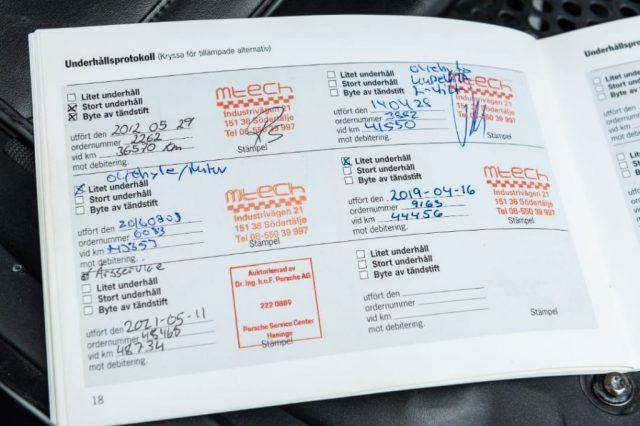 Underhållsprotokoll (Kryssa för tillämpade alternativ)
Underhållsp
Litet underhåll
Stort underhåll
Byte av tändstift
utfört den 2012 05 29
ordernummer 2262
vid km 36570 km
mot debitering.
mtech
Industrivägen 21
151 38 Södertälje
Tel 08-550 39 997
Stämpel
oljebyte
Litet underhåll
Stort underhåll
Byte av tändstift
utfört den 140428
ordernummer
vid km 41550
mot debitering.
mtech
Industrivägen 21
151 38 Södertälje
Tel 08-550 39 997
Stämpel
Litet underhåll
Stort underhåll
Byte av tändstift
utfört den 20160803
ordernummer 6033
vid km
mot debitering.
mtech
Industrivägen 21
151 38 Södertälje
Tel 08-550 39 997
Stämpel
Litet underhåll
Stort underhåll
Byte av tändstift
utfört den 2019-04-16
ordernummer 9163
vid km 44456
mot debitering.
mtech
Industrivägen 21
151 38 Södertälje
Tel 08-550 39 997
Stämpel
Årsservice
Litet underhåll
Stort underhåll
Byte av tändstift
utfört den 2021-05-11
ordernummer 48465
vid km 48734
mot debitering.
Auktoriserad av
Dr. Ing. h.c.F. Porsche AG
222 0889
Porsche Service Center
Haninge
Stämpel
Litet underhåll
Stort underhåll
Byte av tändstift
utfört den
ordernummer
vid km
mot debitering.
Stämpel
18